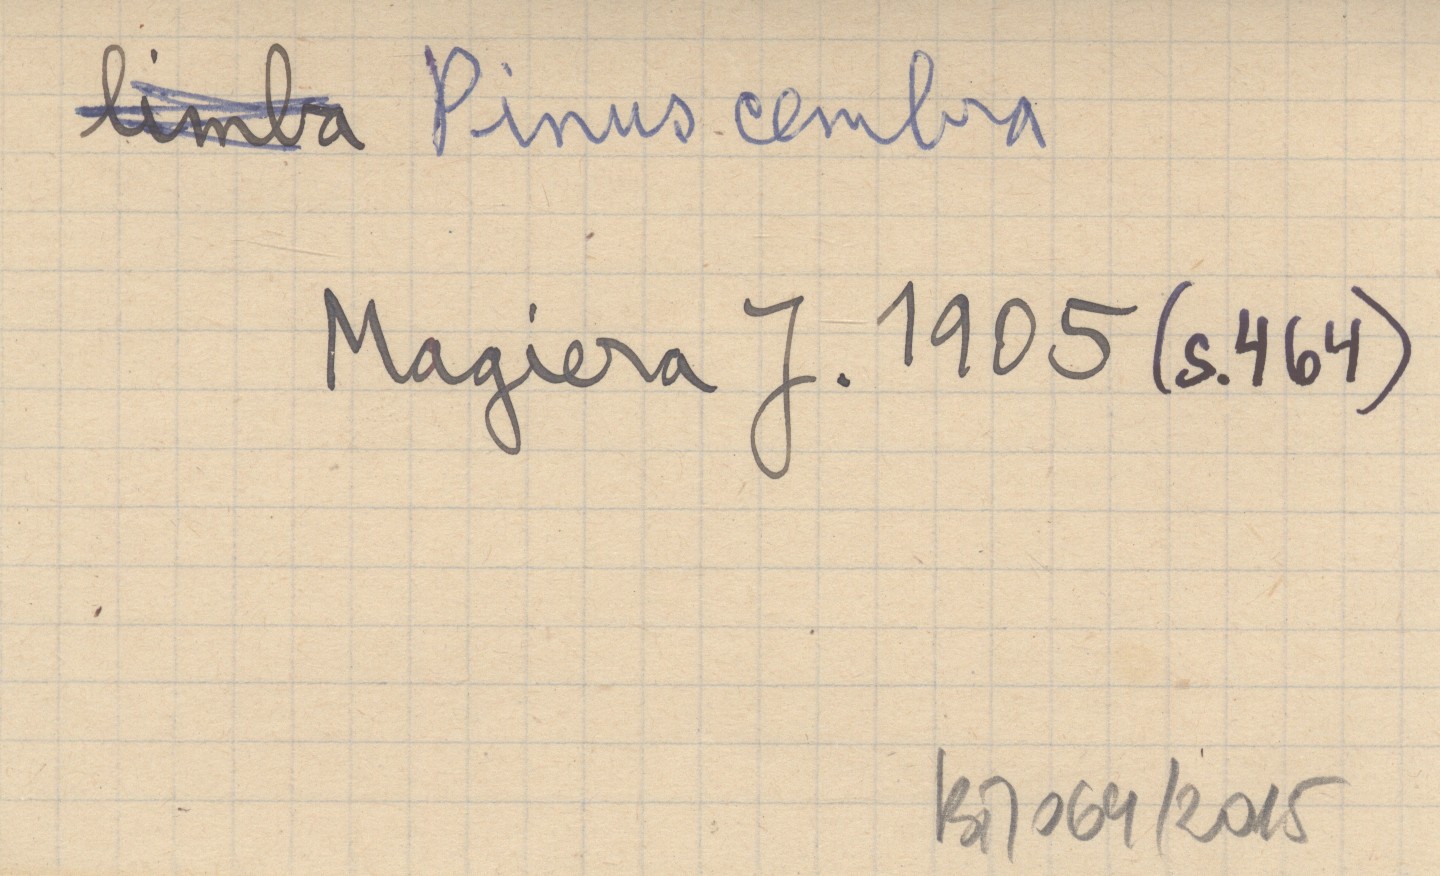 limba Pinus cembra
Magiera J. 1905 (s.464)
/2015